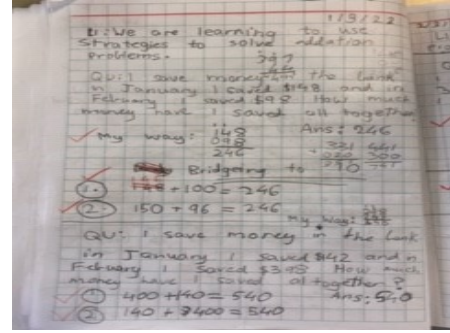 1/9/22
LI: We are learning to use
strategies to solve addation
problems.
QU: I save money in the bank
in January I saved $148 and in
February I saved $98 How much
money have I saved all together
My way: 148 Ans: 246
098
246
Bridgeing to
① + 100 = 246
② 150 + 96 = 246
My way:
QU: I save money in the bank
in January I saved $142 and n
February I saved $398 How much
money have I saved al together?
① 400 + 140 = 540 Ans: 540
② 140 + 400 = 540